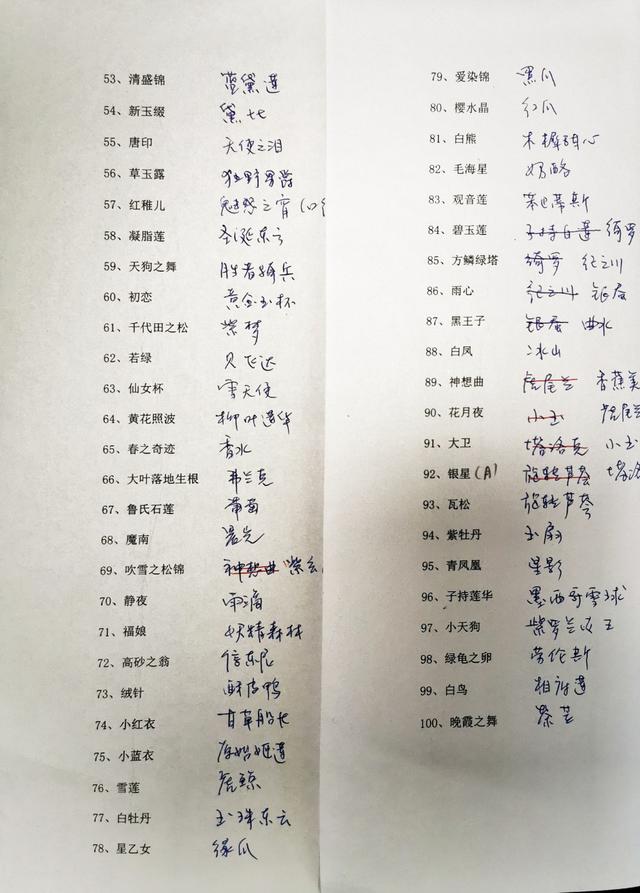 53、清盛锦 蓝黛莲
54、新玉缀 黛比
55、唐印 天使之泪
56、草玉露 狂野男爵
57、红稚儿 魅惑之宵
58、凝脂莲 圣诞东云
59、天狗之舞 胜者骑兵
60、初恋 黄金玉杯
61、千代田之松 紫梦
62、若绿 贝飞达
63、仙女杯 雪天使
64、黄花照波 柳叶莲华
65、春之奇迹 香水
66、大叶落地生根 弗兰克
67、鲁氏石莲 葡萄
68、魔南 晨光
69、吹雪之松锦 神想曲 紫玄
70、静夜 雨滴
71、福娘 妖精森林
72、高砂之翁 信东尼
73、绒针 酥皮鸭
74、小红衣 甘草船长
75、小蓝衣 原始姬莲
76、雪莲 虎鲸
77、白牡丹 玉珠东云
78、星乙女 绿爪
79、爱染锦 黑爪
80、樱水晶 红爪
81、白熊 木樨甜心
82、毛海星 奶酪
83、观音莲 茱迪蒂斯
84、碧玉莲 子持白莲 绮罗
85、方鳞绿塔 绮罗 纪之川
86、雨心 纪之川 银星
87、黑王子 银星 曲水
88、白凤 冰山
89、神想曲 虎尾兰 香蕉美
90、花月夜 小玉 虎尾兰
91、大卫 塔洛克 小玉
92、银星(A) 旋转芦荟 塔洛
93、瓦松 旋转芦荟
94、紫牡丹 玉扇
95、青凤凰 星影
96、子持莲华 墨西哥雪球
97、小天狗 紫罗兰女王
98、绿龟之卵 劳伦斯
99、白鸟 相府莲
100、晚霞之舞 京芒